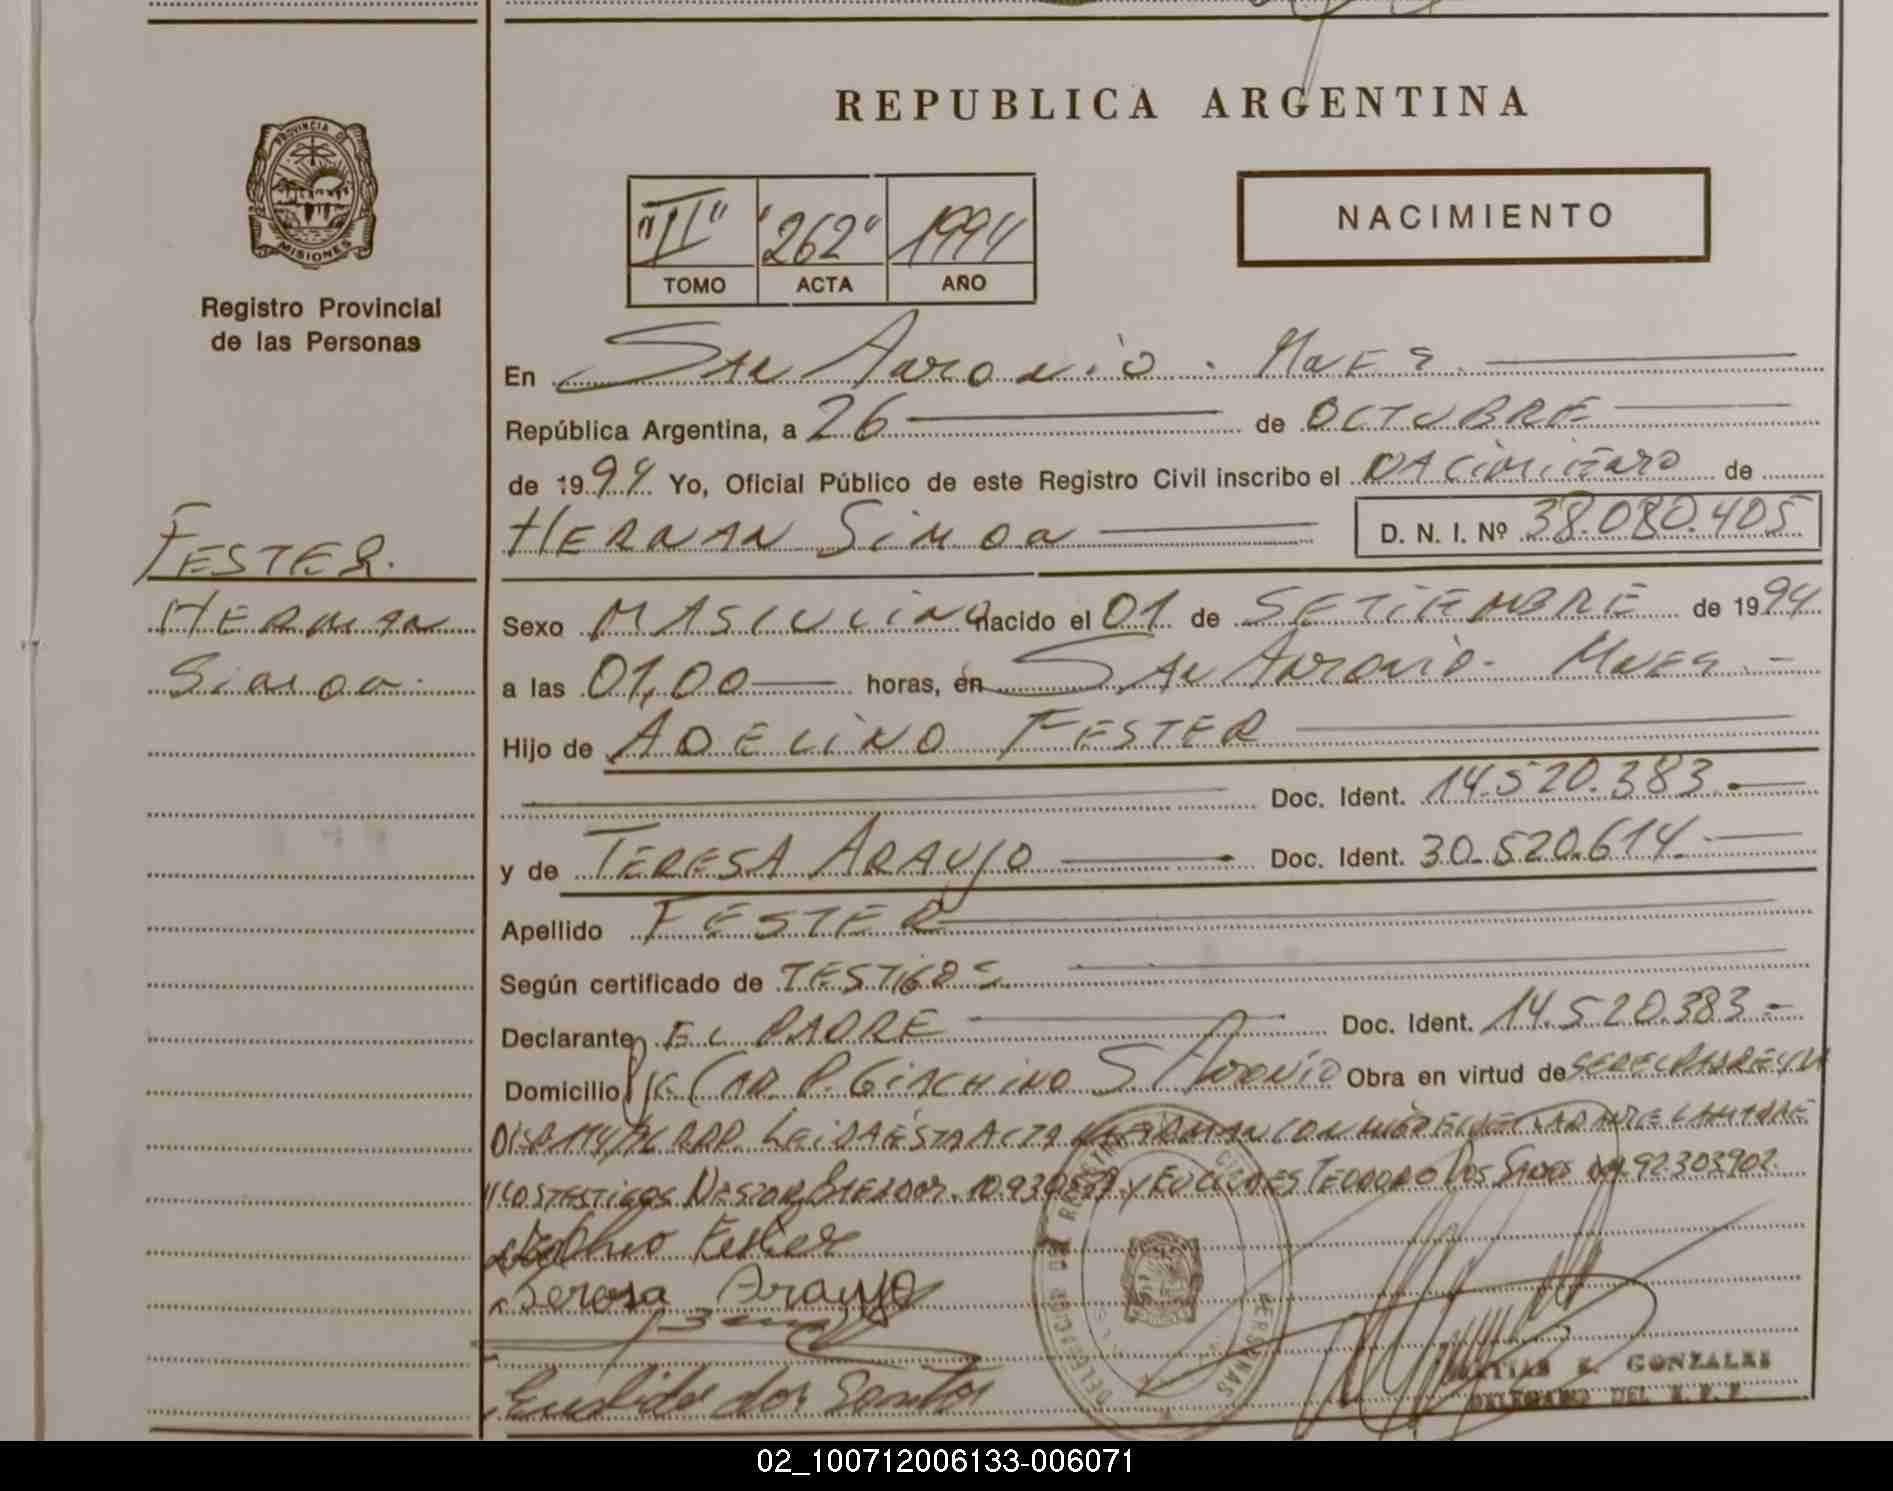 REPUBLICA ARGENTINA
PROVINCIA DE
MISIONES
Registro Provincial
de las Personas
"II" "262" 1994
TOMO ACTA AÑO
NACIMIENTO
En San Antonio . Mnes.
República Argentina, a 26 de OCTUBRE
de 1994 Yo, Oficial Público de este Registro Civil inscribo el NACIMIENTO de
HERNAN SIMON D. N. I. Nº 38.080.405
FESTER.
HERNAN
SIMON.
Sexo MASCULINO nacido el 01 de SETIEMBRE de 1994
a las 01,00 horas, en San Antonio - Mnes. -
Hijo de ADELINO FESTER
Doc. Ident. 14.520.383.-
y de TERESA ARAUJO Doc. Ident. 30.520.614.
Apellido FESTER
Según certificado de TESTIGOS
Declarante EL PADRE Doc. Ident. 14.520.383 -
Domicilio P. GIACHINO S. Antonio Obra en virtud de
LEIDA ESTA ACTA LA FIRMAN CON LA MADRE
LOS TESTIGOS NESTOR Y EUCLIDES TEODORO DOS 92.303.902.
Fester
Teresa Araujo
Euclide dos
GONZALES
DELEGADO DEL R. P. P.
02_100712006133-006071